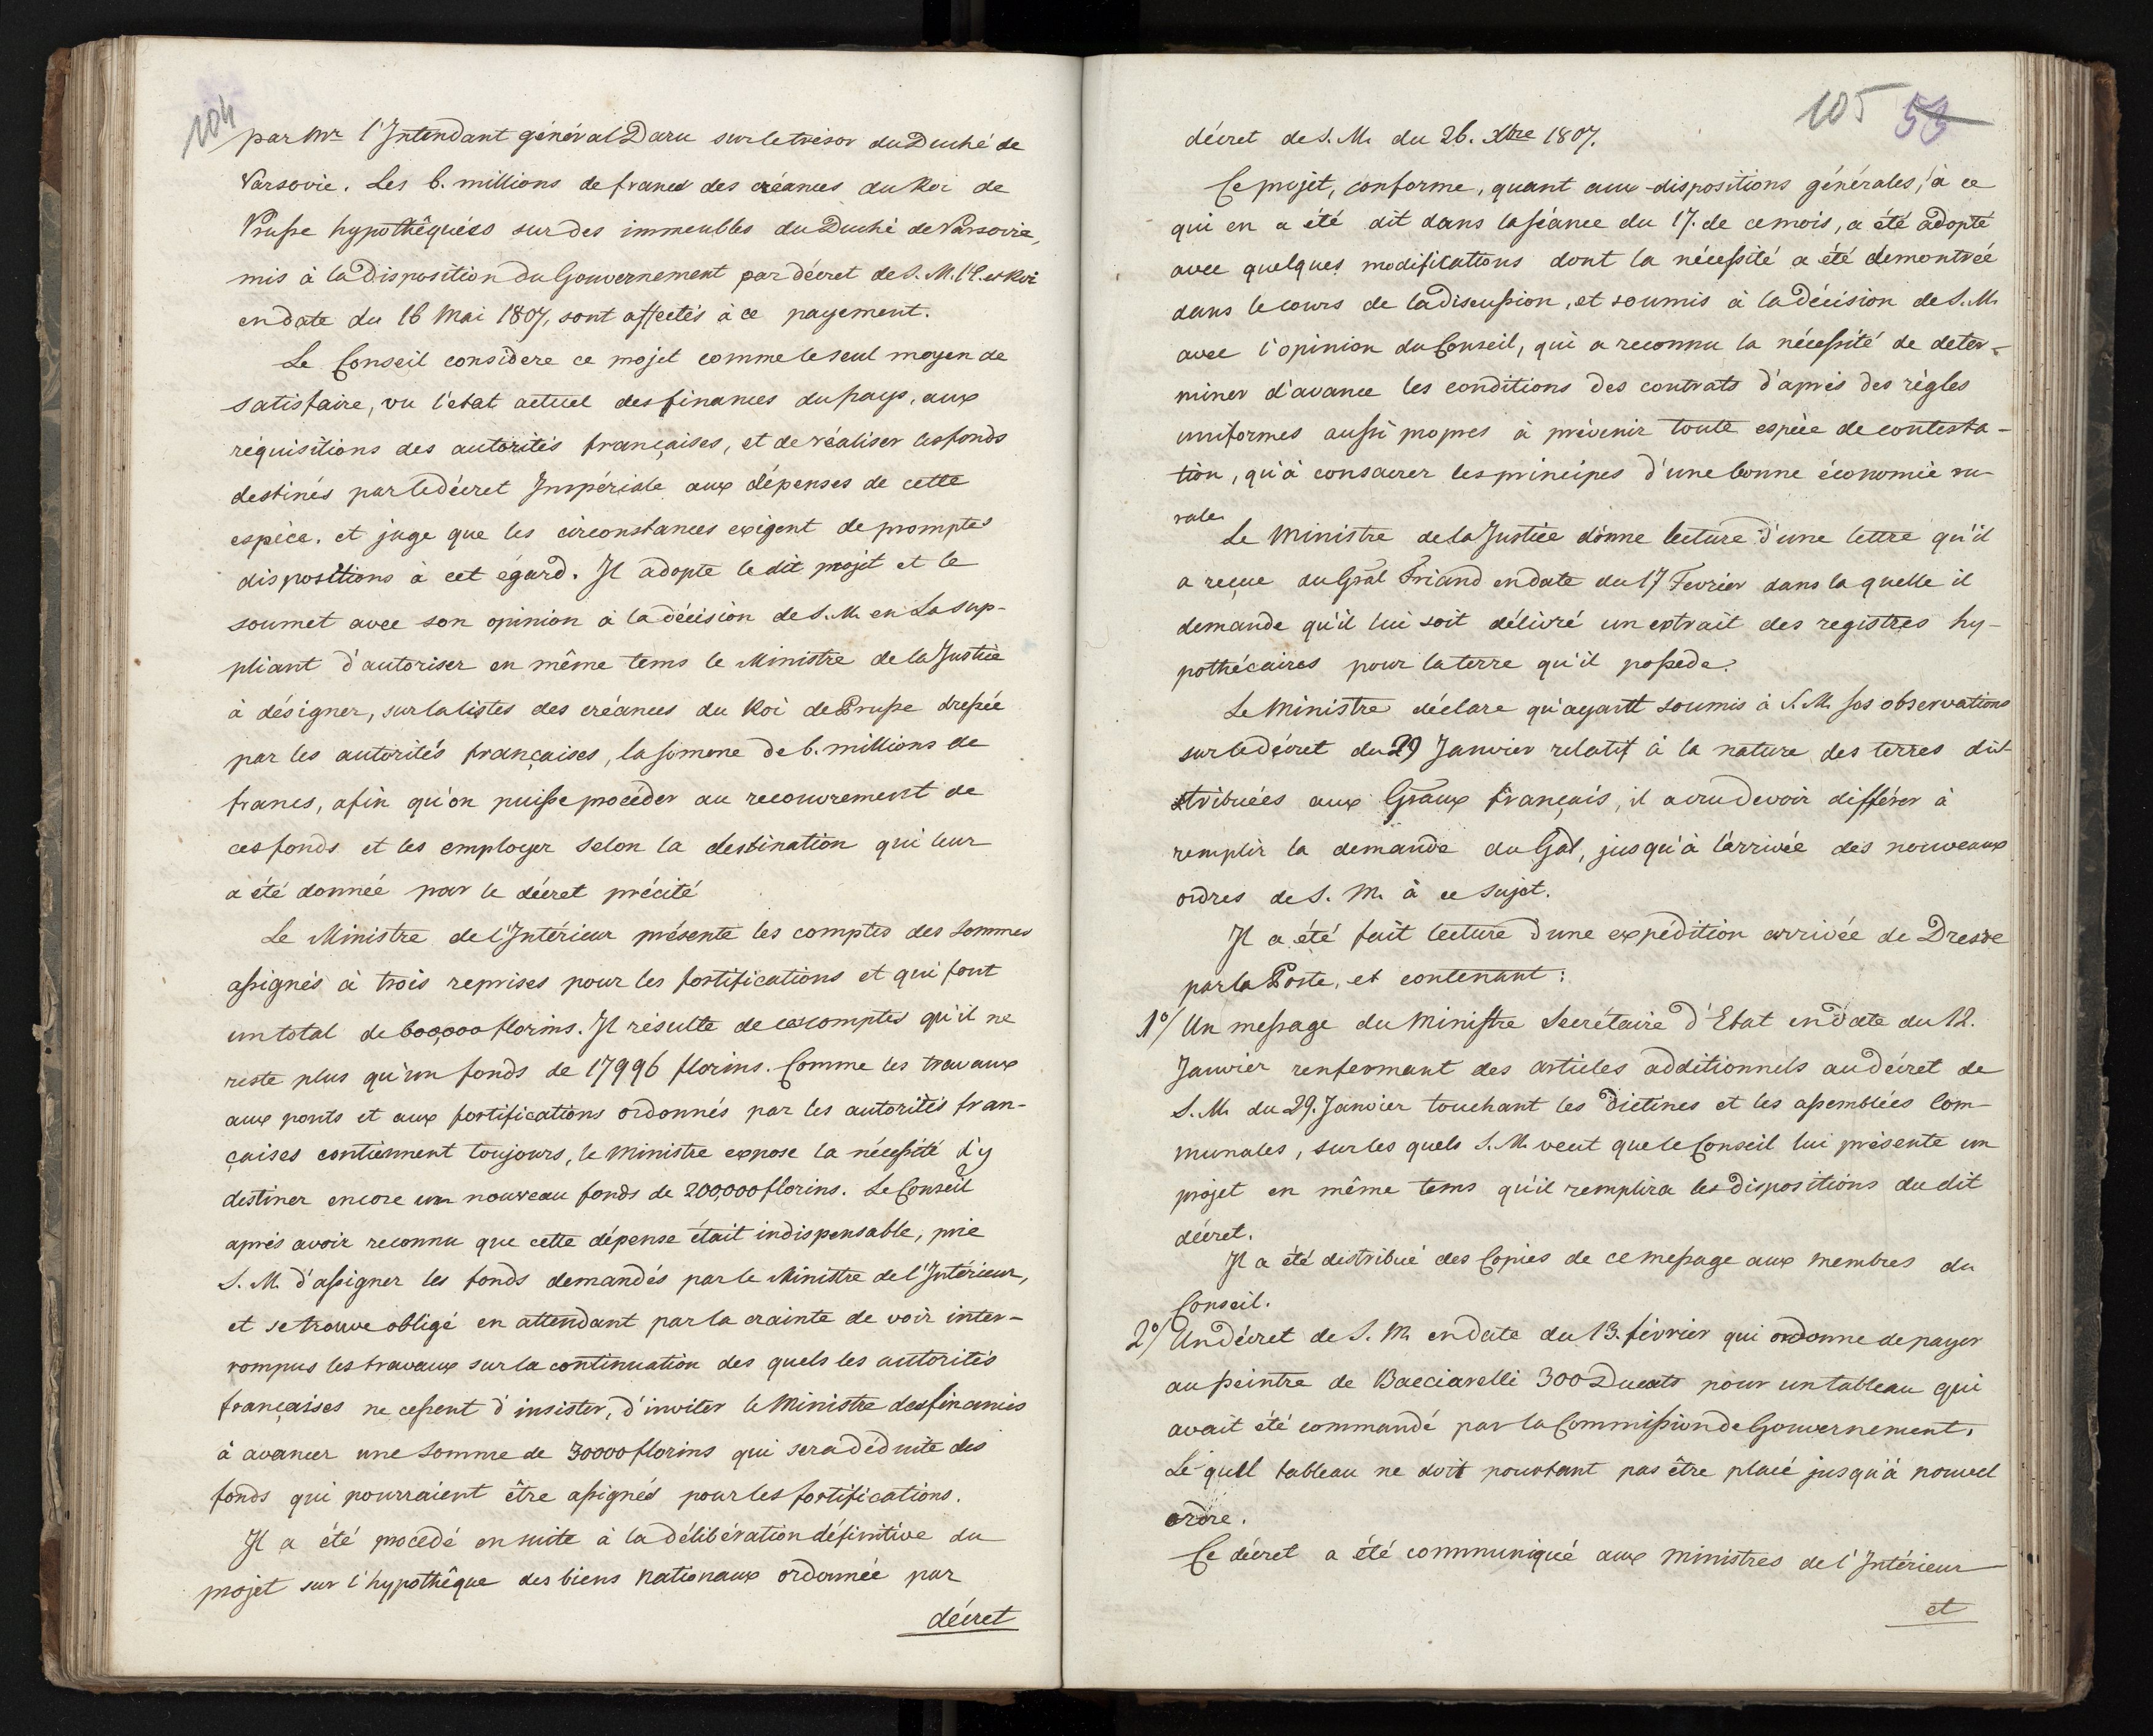 104
par Mr l'Intendant général Daru sur le trésor du Duché de
Varsovie. Les 6. millions de francs des créances du Roi de
Prusse hypothêquées sur des immeubles du Duché de Varsovie,
mis à la Disposition du Gouvernement par décret de S. M. l'E. et Roi
en date du 16 Mai 1807, sont affectés à ce payement.
Le Conseil considere ce projet comme le seul moyen de
satisfaire, vu l'etat actuel des finances du pays, aux
réquisitions des autorités françaises, et de réaliser les fonds
destinés par le décret Impériale aux dépenses de cette
espèce, et juge que les circonstances exigent de promptes
dispositions à cet égard. Il adopte le dit projet et le
soumet avec son opinion à la décision de S. M. en La sup-
pliant d'autoriser en même tems le Ministre de la Justice
à désigner, sur la listes des créances du Roi de Prusse dressée
par les autorités françaises, la somme de 6. millions de
francs, afin qu'on puisse procéder au recouvrement de
ces fonds et les employer selon la destination qui leur
a été donnée par le décret précité
Le Ministre de l'Intérieur présente les comptes des sommes
assignés à trois reprises pour les fortifications et qui font
un total de 600,000 florins. Il résulte de ces comptes qu'il ne
reste plus qu'un fonds de 17996 florins. Comme les travaux
aux ponts et aux fortifications ordonnés par les autorités fran-
çaises contiennent toujours, le Ministre expose la nécessité d'y
destiner encore un nouveau fonds de 200,000 florins. Le Conseil
après avoir reconnu que cette dépense était indispensable, prie
S. M. d'assigner les fonds demandés par le Ministre de l'Intérieur,
et se trouve obligé en attendant par la crainte de voir inter-
rompus les travaux sur la continuation des quels les autorités
françaises ne cessent d'insister, d'inviter le Ministre des finances
à avancer une somme de 30000 florins qui sera déduite des
fonds qui pourraient être assignés pour les fortifications.
Il a été procédé en suite à la délibération définitive du
projet sur l'hypothêque des biens Nationaux ordonnée par
décret
105 53
décret de S. M. du 26. Xbre 1807.
Ce projet, conforme, quant aux dispositions générales, à ce
qui en a été dit dans la séance du 17. de ce mois, a été adopté
avec quelques modifications dont la nécessité a été démontrée
dans le cours de la discussion, et soumis à la décision de S. M.
avec l'opinion du Conseil, qui a reconnu la nécessité de deter-
miner d'avance les conditions des contrats d'après des règles
uniformes aussi propres à prévenir toute espèce de contesta-
tion, qu'à consacrer les principes d'une bonne économie ru-
rale
Le Ministre de la Justice donne lecture d'une lettre qu'il
a reçue du Gral Friand en date du 17 Fevrier dans la quelle il
demande qu'il lui soit délivré un extrait des registres hy-
pothécaires pour la terre qu'il possede.
Le Ministre déclare qu'ayant soumis à S. M. ses observations
sur le décret du 29 Janvier relatif à la nature des terres dis-
tribuées aux Graux français, il a cru devoir différer à
remplir la demande du Gal, jusqu'à l'arrivée des nouveaux
ordres de S. M. à ce sujet.
Il a été fait lecture d'une expédition arrivée de Dresde
par la Poste, et contenant:
1º/ Un message du Ministre Secrétaire d'Etat en date du 12.
Janvier renfermant des articles additionnels au décret de
S. M. du 29. Janvier touchant les Diètines et les assemblées Com-
munales, sur les quels S. M. veut que le Conseil lui présente un
projet en même tems qu'il remplira les dispositions du dit
décret.
Il a été distribué des Copies de ce message aux membres du
Conseil.
2º/ Un décret de S. M. en date du 13. février qui ordonne de payer
au peintre de Bacciarelli 300 Ducats pour un tableau qui
avait été commandé par la Commission de Gouvernement.
Le quel tableau ne doit pourtant pas être placé jusqu'à nouvel
ordre.
Ce décret a été communiqué aux ministres de l'Intérieur
et